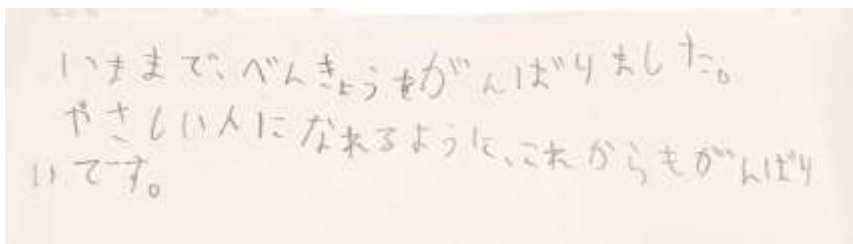 いままで、べんきょうをがんばりました。
やさしい人になれるように、これからもがんばり
いです。